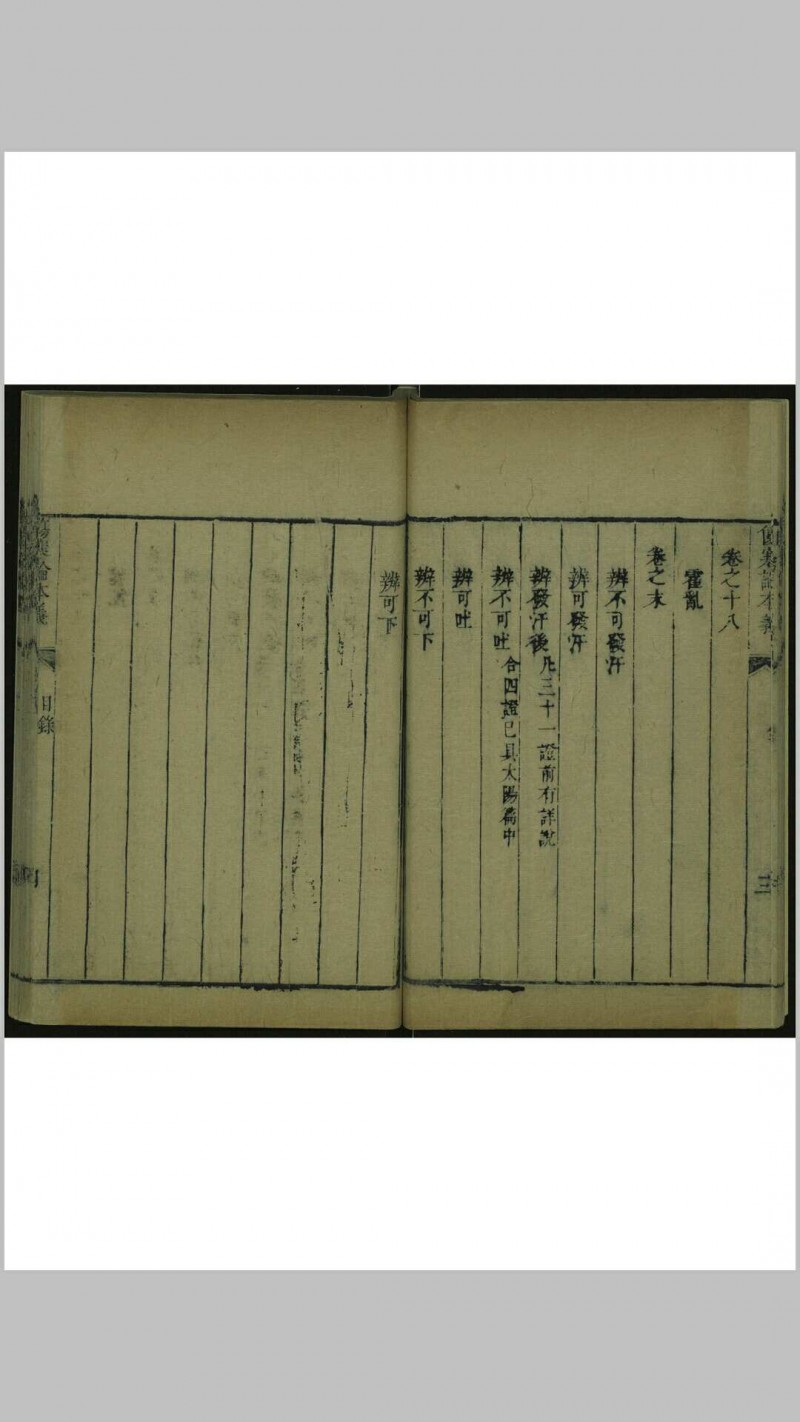 卷之十八
霍亂
卷之末
辨不可發汗
辨可發汗
辨發汗後 凡三十一證前有詳說
辨不可吐 合四證已具太陽篇中
辨可吐
辨不可下
辨可下
傷寒論本義
目錄